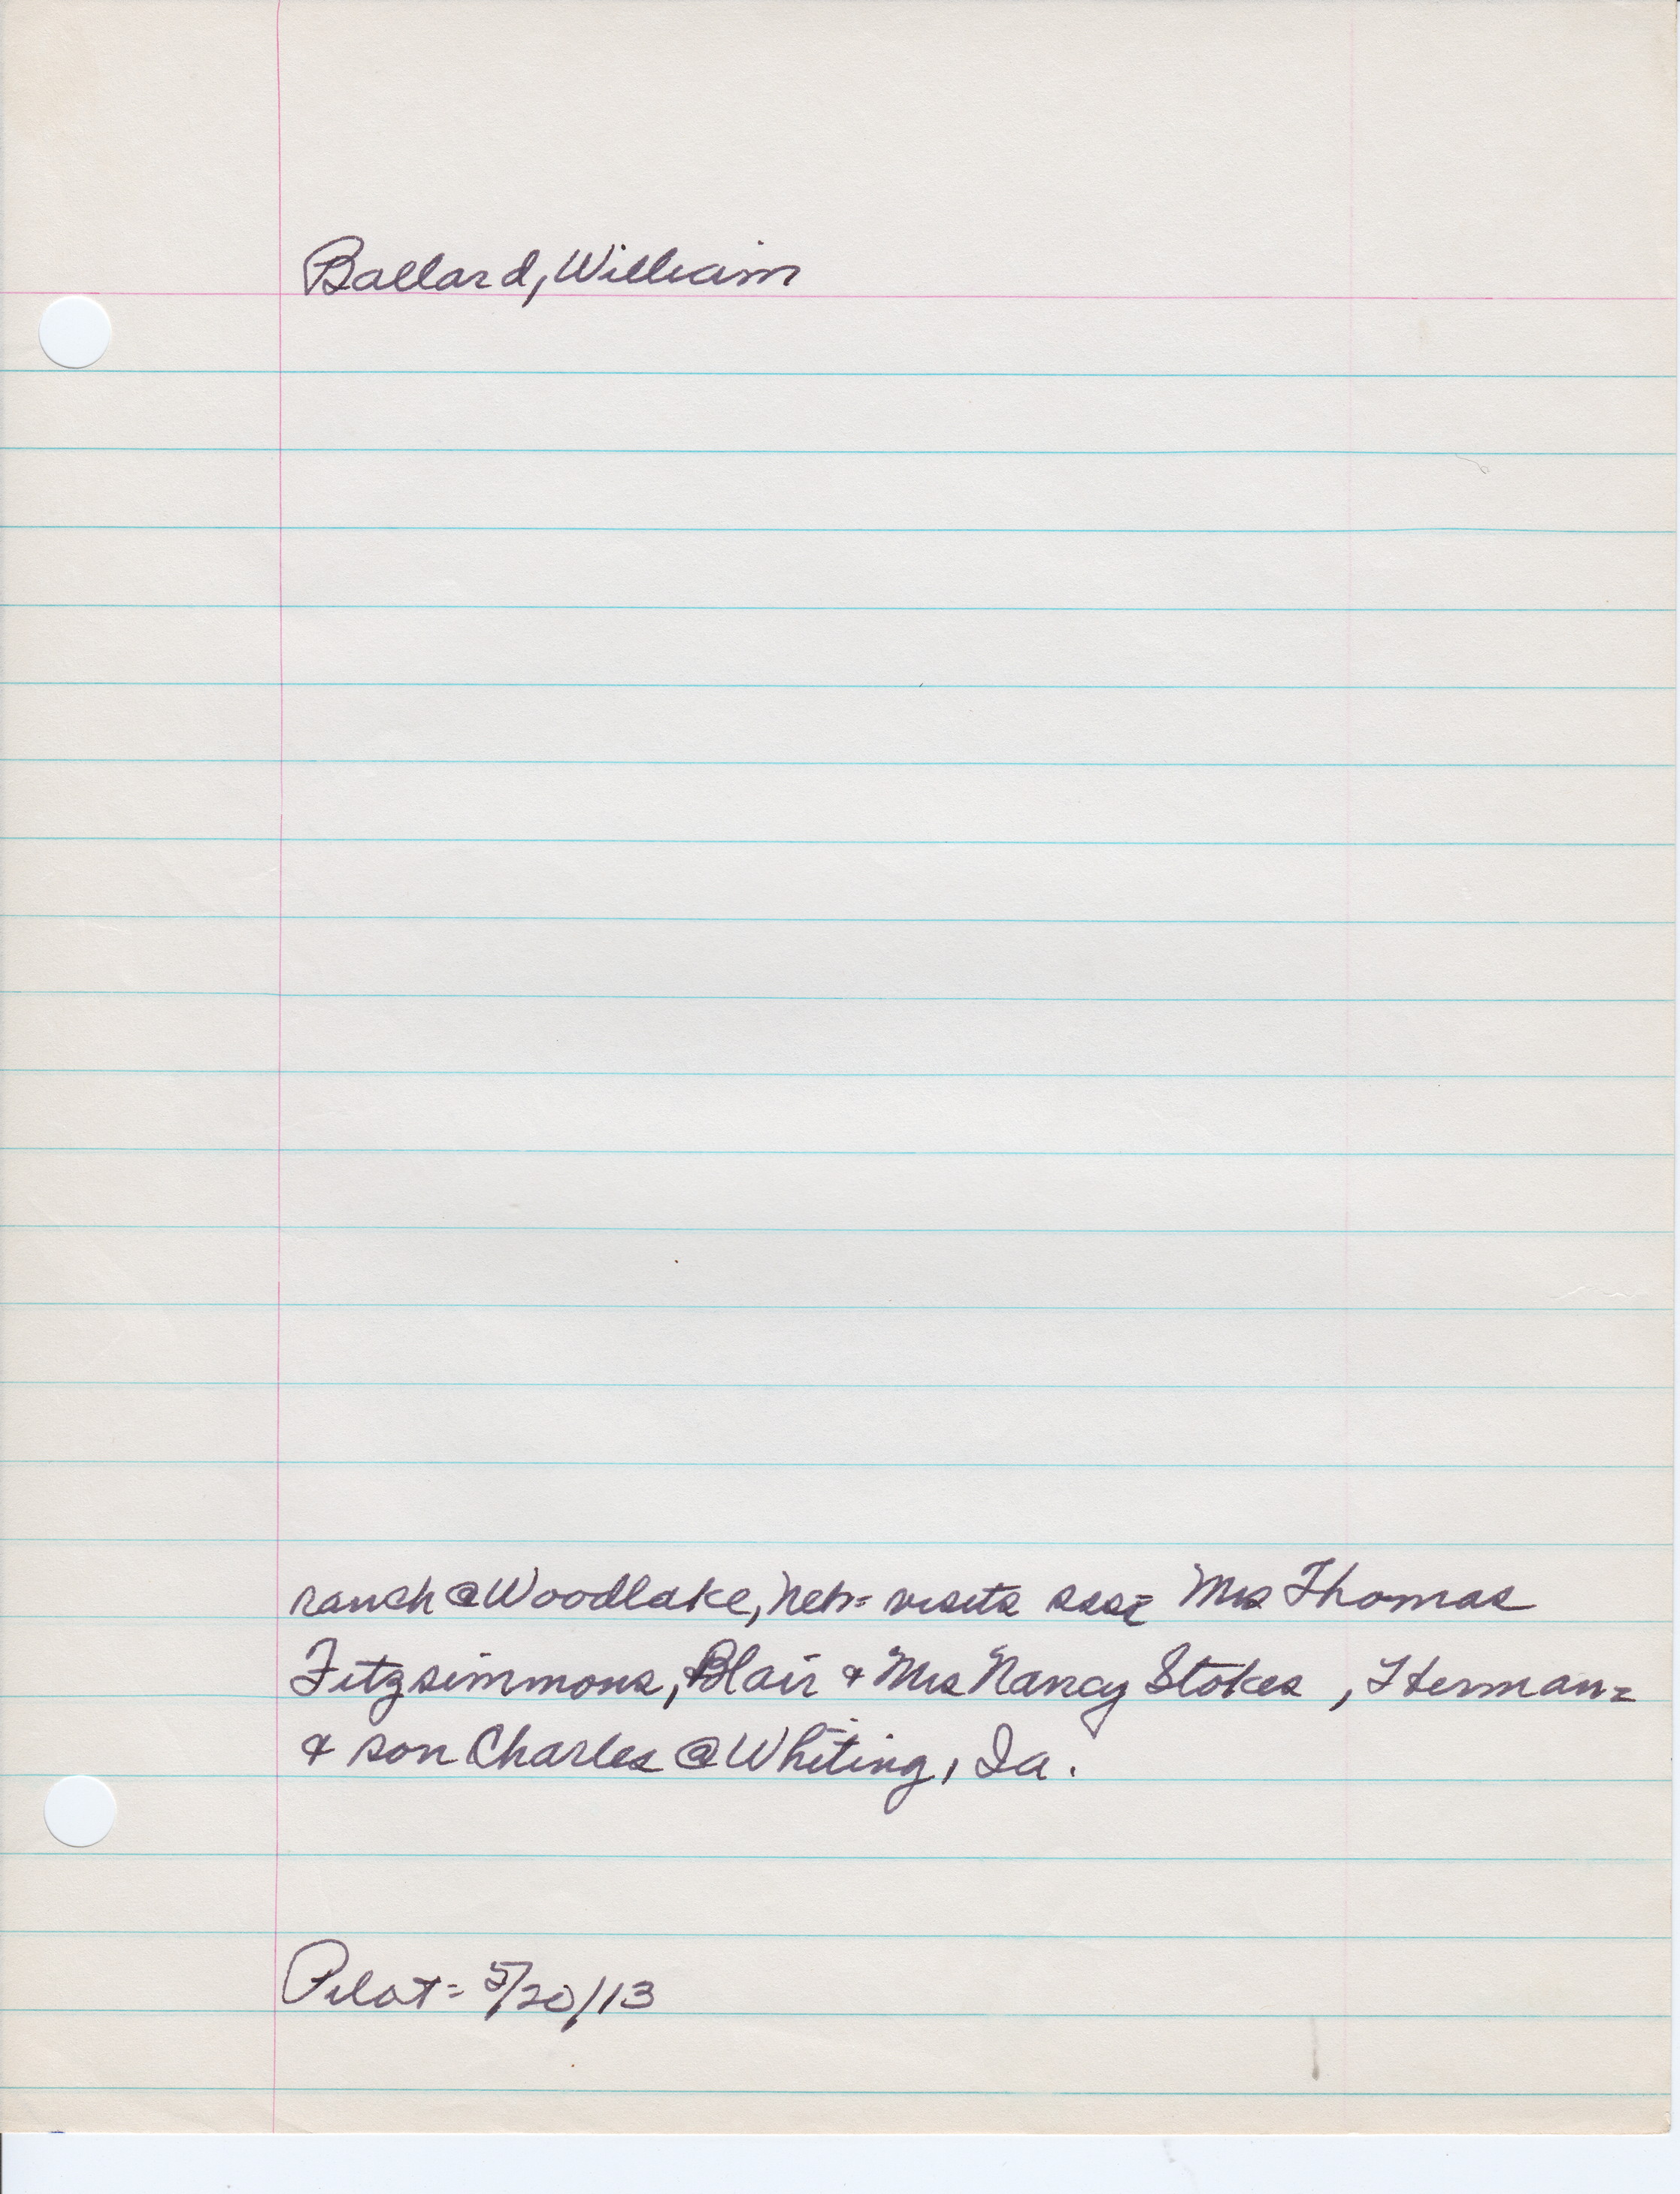 Ballard, William
ranch @ Woodlake, Neb= visits siss= Mrs Thomas
Fitzsimmons, Blair & Mrs Nancy Stokes , Herman=
& son Charles @ Whiting, Ia.
Pilot= 5/20/13